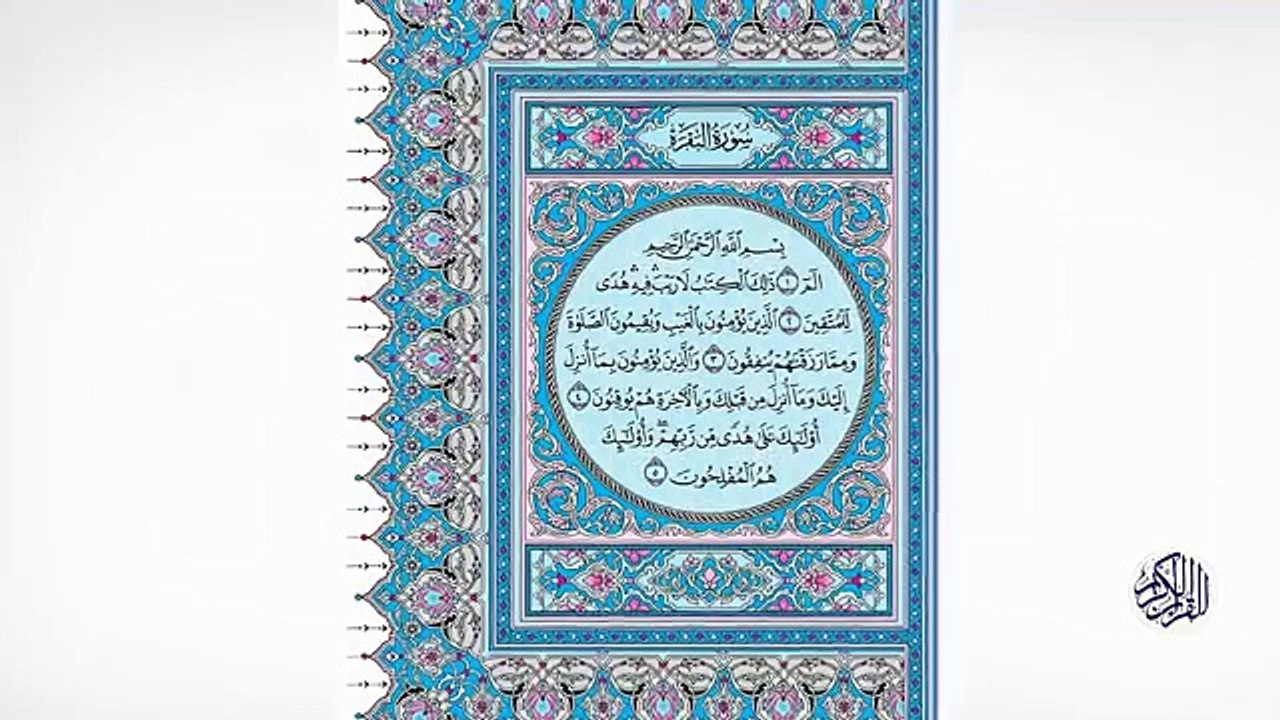 سُورَةُ البَقَرَةِ
بِسْمِ ٱللَّهِ ٱلرَّحْمَٰنِ ٱلرَّحِيمِ
الٓمٓ ١ ذَٰلِكَ ٱلْكِتَٰبُ لَا رَيْبَ ۛ فِيهِ ۛ هُدًى
لِّلْمُتَّقِينَ ٢ ٱلَّذِينَ يُؤْمِنُونَ بِٱلْغَيْبِ وَيُقِيمُونَ ٱلصَّلَوٰةَ
وَمِمَّا رَزَقْنَٰهُمْ يُنفِقُونَ ٣ وَٱلَّذِينَ يُؤْمِنُونَ بِمَآ أُنزِلَ
إِلَيْكَ وَمَآ أُنزِلَ مِن قَبْلِكَ وَبِٱلْءَاخِرَةِ هُمْ يُوقِنُونَ ٤
أُو۟لَٰٓئِكَ عَلَىٰ هُدًى مِّن رَّبِّهِمْ ۖ وَأُو۟لَٰٓئِكَ
هُمُ ٱلْمُفْلِحُونَ ٥
القرآن الكريم